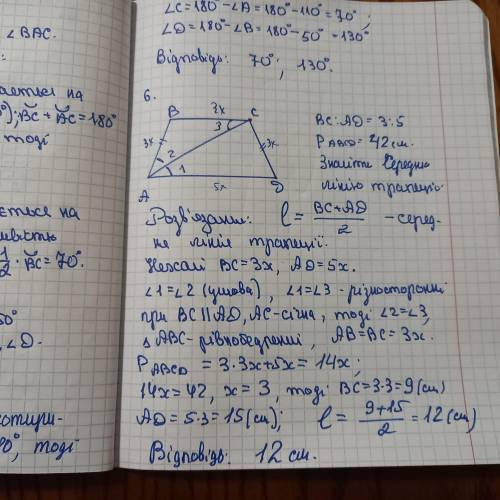 ∠BAC.
ається на
°); B͝C + A͝C = 180°
тоді
ється на
1/2 · B͝C = 70°.
50°
∠D.
тоді
∠C = 180° - ∠A = 180° - 110° = 70°;
∠D = 180° - ∠B = 180° - 50° = 130°
Відповідь: 70°; 130°.
6.
B 2x C
3x 3 3x
2 1
A 5x D
BC : AD = 3 : 5
P ABCD = 42 см.
Знайти середню
лінію трапеції.
Розв'язання: l = (BC + AD)/2 - серед-
нє лінія трапеції.
Нехай BC = 3x, AD = 5x.
∠1 = ∠2 (умова), ∠1 = ∠3 - різносторонні
при BC || AD, AC - січна, тоді ∠2 = ∠3,
△ ABC - рівнобедрений, AB = BC = 3x.
P ABCD = 3·3x + 5x = 14x;
14x = 42, x = 3, тоді BC = 3·3 = 9 (см)
AD = 5·3 = 15 (см); l = (9 + 15)/2 = 12 (см)
Відповідь: 12 см.